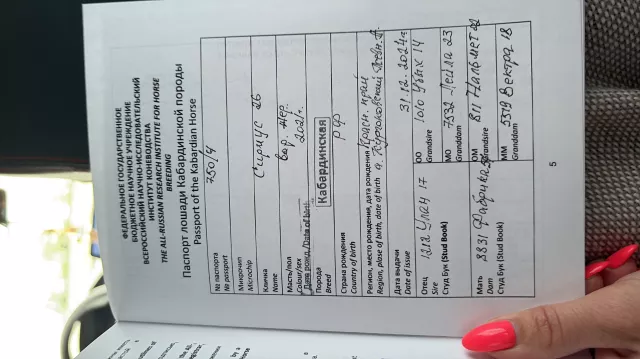 ФЕДЕРАЛЬНОЕ ГОСУДАРСТВЕННОЕ
БЮДЖЕТНОЕ НАУЧНОЕ УЧРЕЖДЕНИЕ
ВСЕРОССИЙСКИЙ НАУЧНО-ИССЛЕДОВАТЕЛЬСКИЙ
ИНСТИТУТ КОНЕВОДСТВА
THE ALL-RUSSIAN RESEARCH INSTITUTE FOR HORSE
BREEDING
Паспорт лошади Кабардинской породы
Passport of the Kabardian Horse
№ паспорта 750/4
№ passport
Микрочип
Microchip
Кличка Сириус 26
Name
Масть/пол вор. жер.
Colour/sex
Дата рожд./Date of birth 2021г.
Порода Кабардинская
Breed
Страна рождения РФ
Country of birth
Регион, место рождения, дата рождения Красн. край
Region, plase of birth, date of birth
Дата выдачи 31.12.2024г.
Date of issue
Отец 1212 Улан 17
Sire
Студ Бук (Stud Book)
ОО 1010 14
Grandsire
МО 7532 Лейла 23
Granddam
Мать 8831 Фабрика
Dam
Студ Бук (Stud Book)
ОМ 811 Нальмет
Grandsire
ММ 5579 Вектра 18
Granddam
5